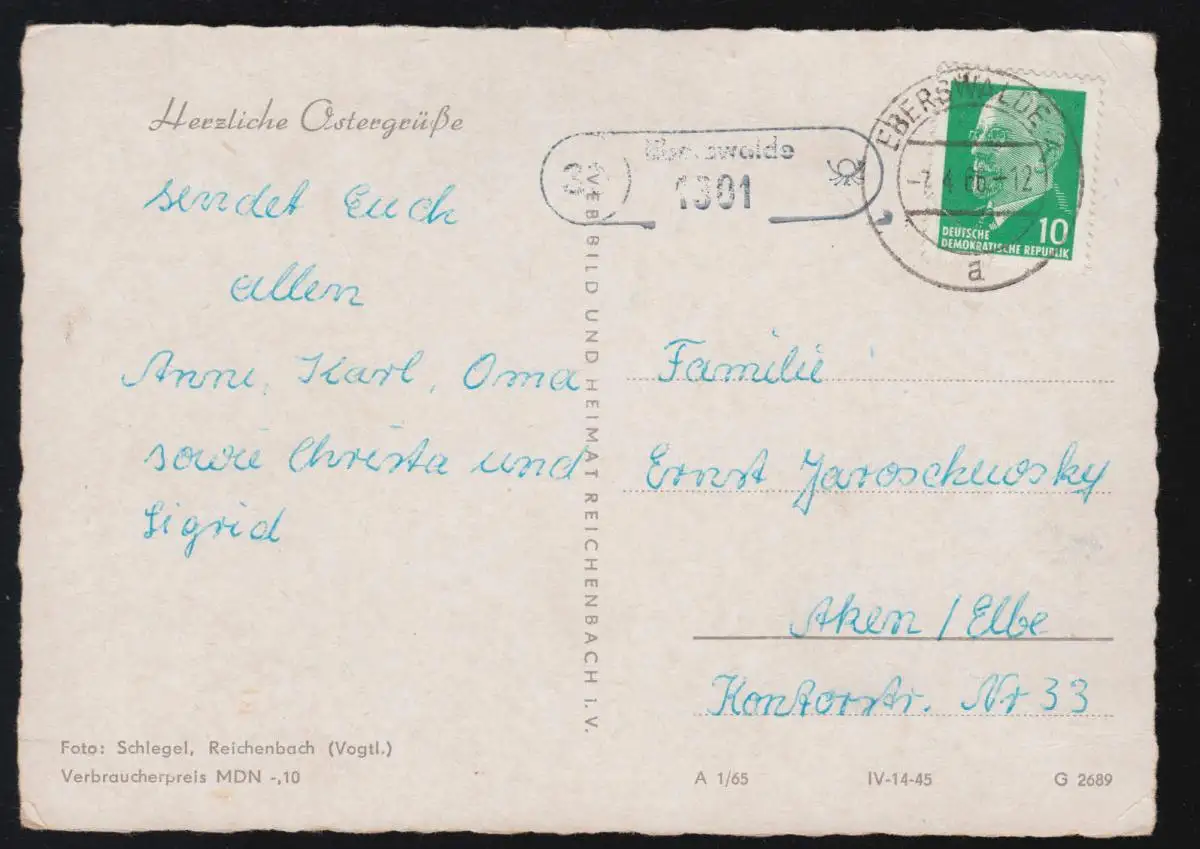 Herzliche Ostergrüße
sendet Euch
allen
Anni, Karl, Oma
sowie Christa und
Sigrid
Foto: Schlegel, Reichenbach (Vogtl.)
Verbraucherpreis MDN -,10
VEB BILD UND HEIMAT REICHENBACH I. V.
Eberswalde
1301
EBERSWALDE
4.66.-12
a
10
DEUTSCHE
DEMOKRATISCHE REPUBLIK
Familie
Ernst Jaroschewsky
Aken / Elbe
Kontorstr. Nr 33
A 1/65 IV-14-45 G 2689